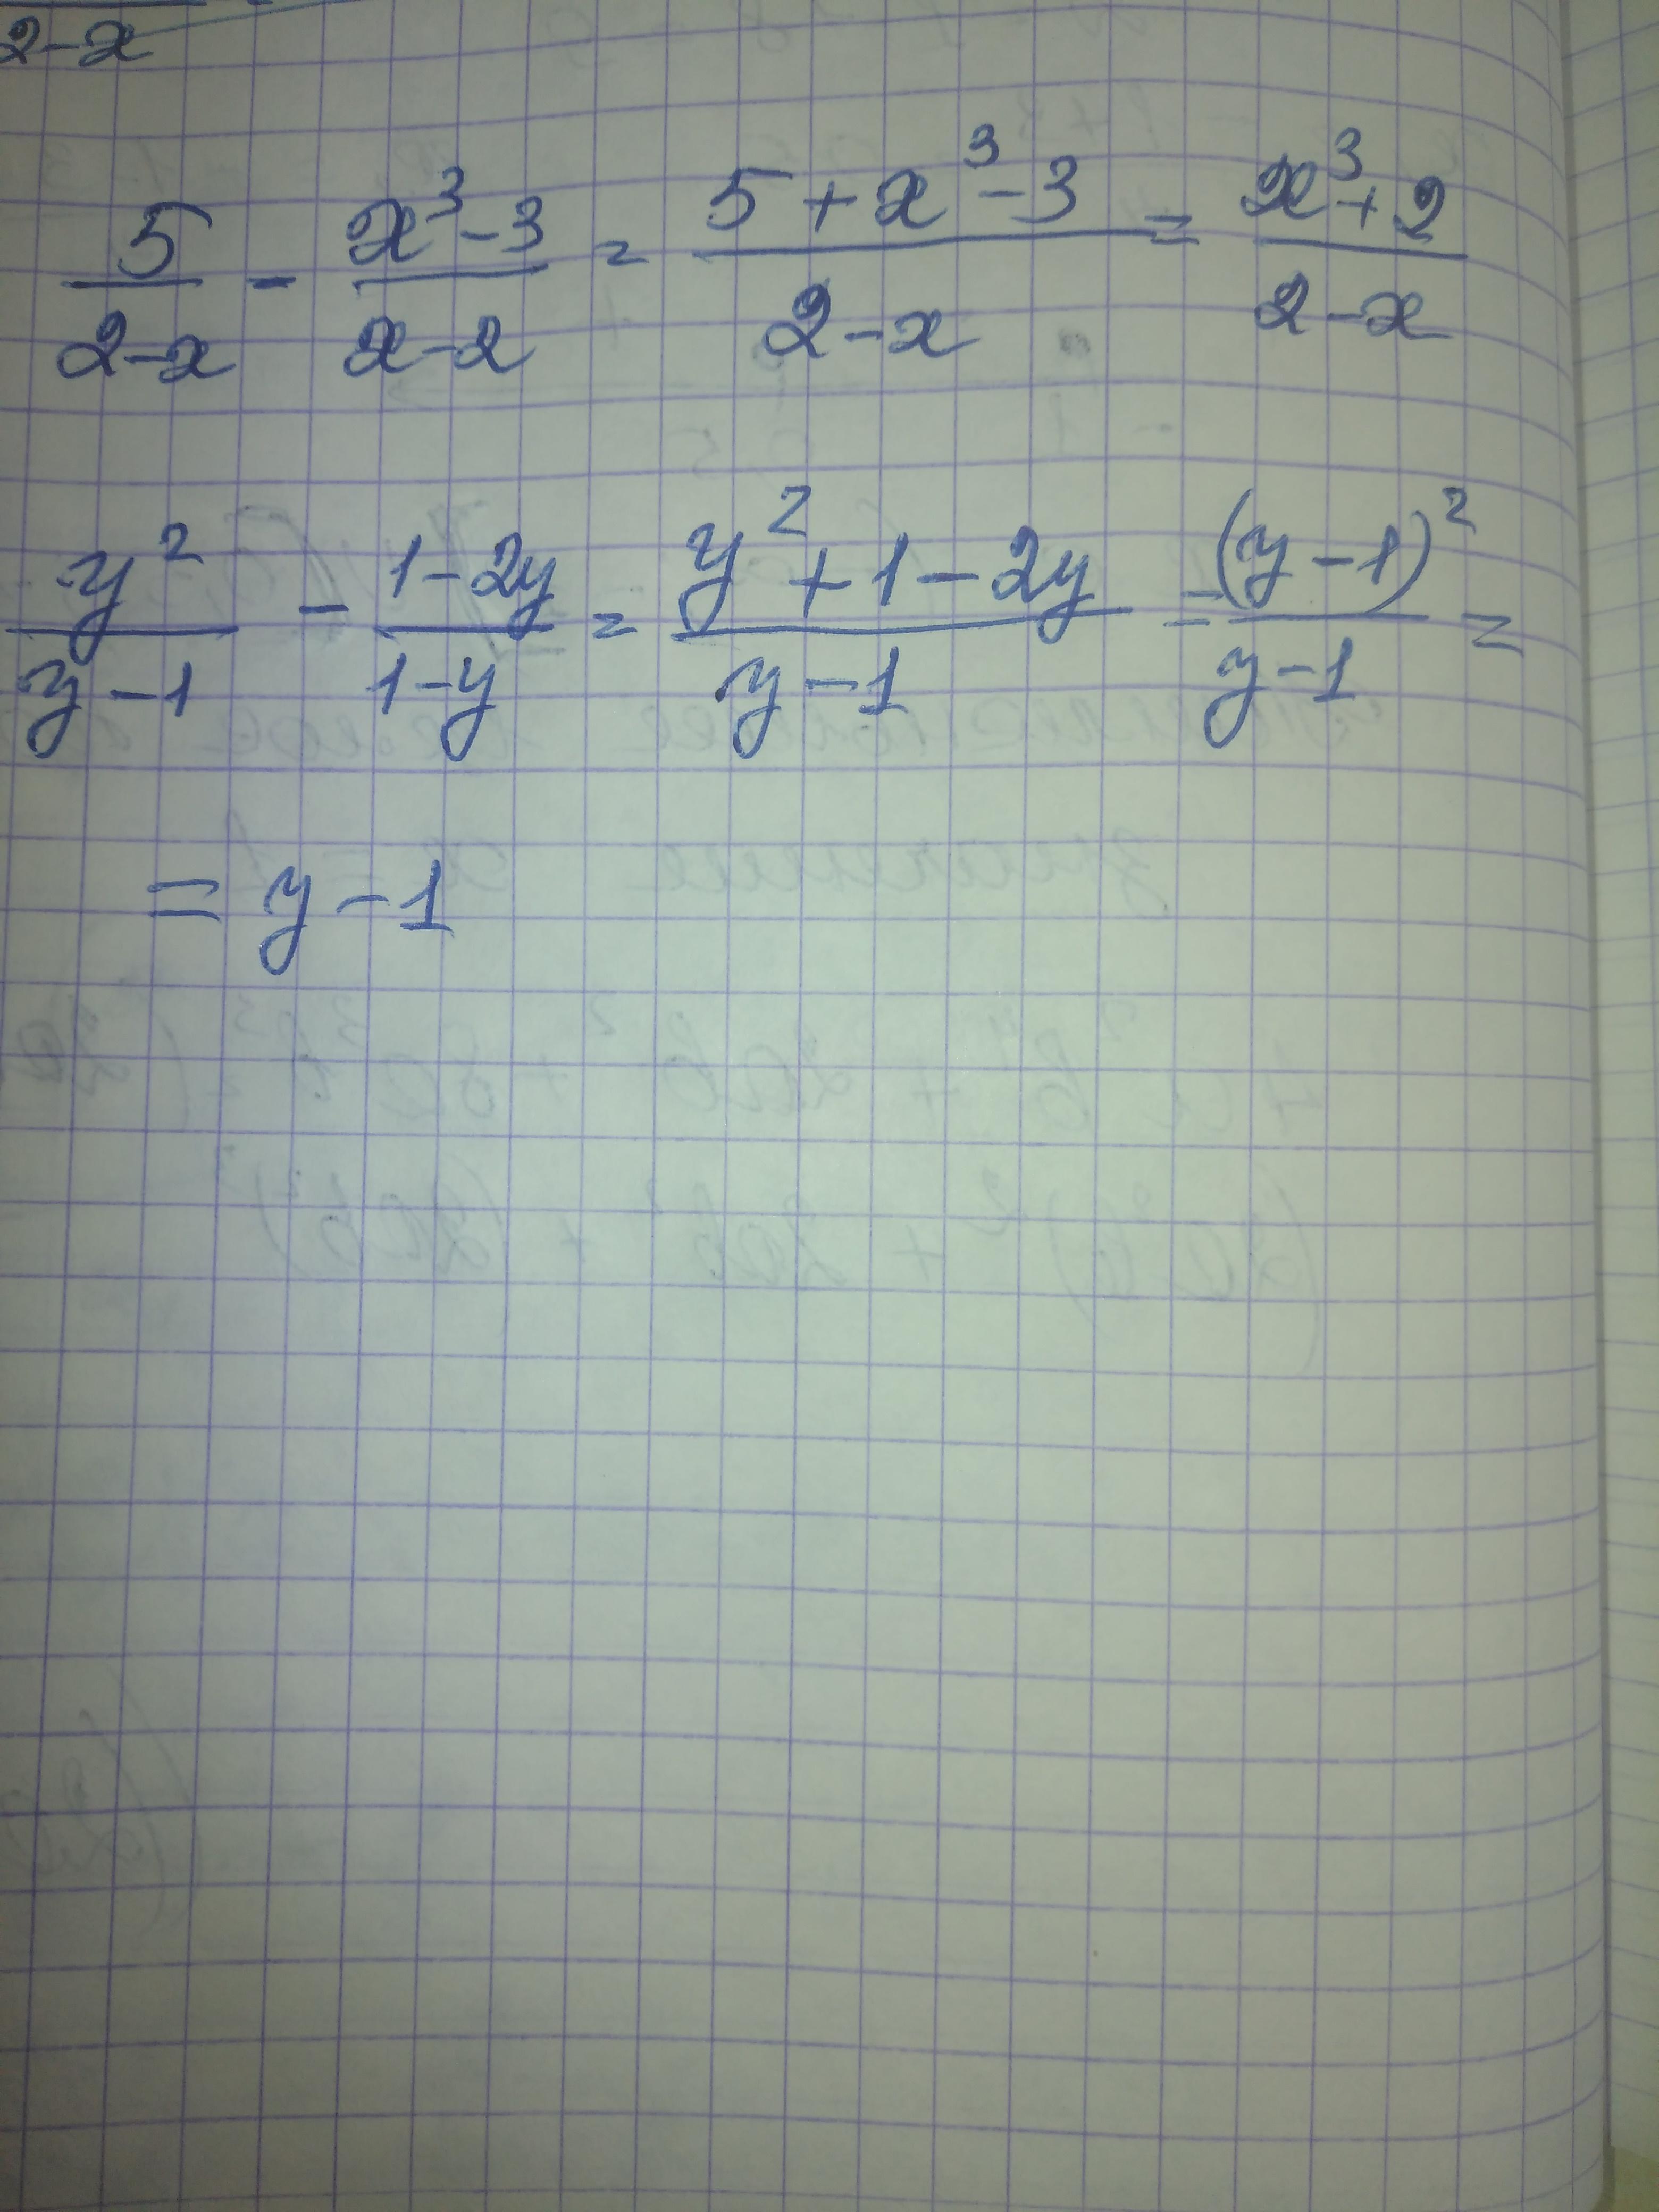 2-x
5/(2-x) - (x³-3)/(x-2) = (5+x³-3)/(2-x) = (x³+2)/(2-x)
y²/(y-1) - (1-2y)/(1-y) = (y²+1-2y)/(y-1) = (y-1)²/(y-1) =
= y-1